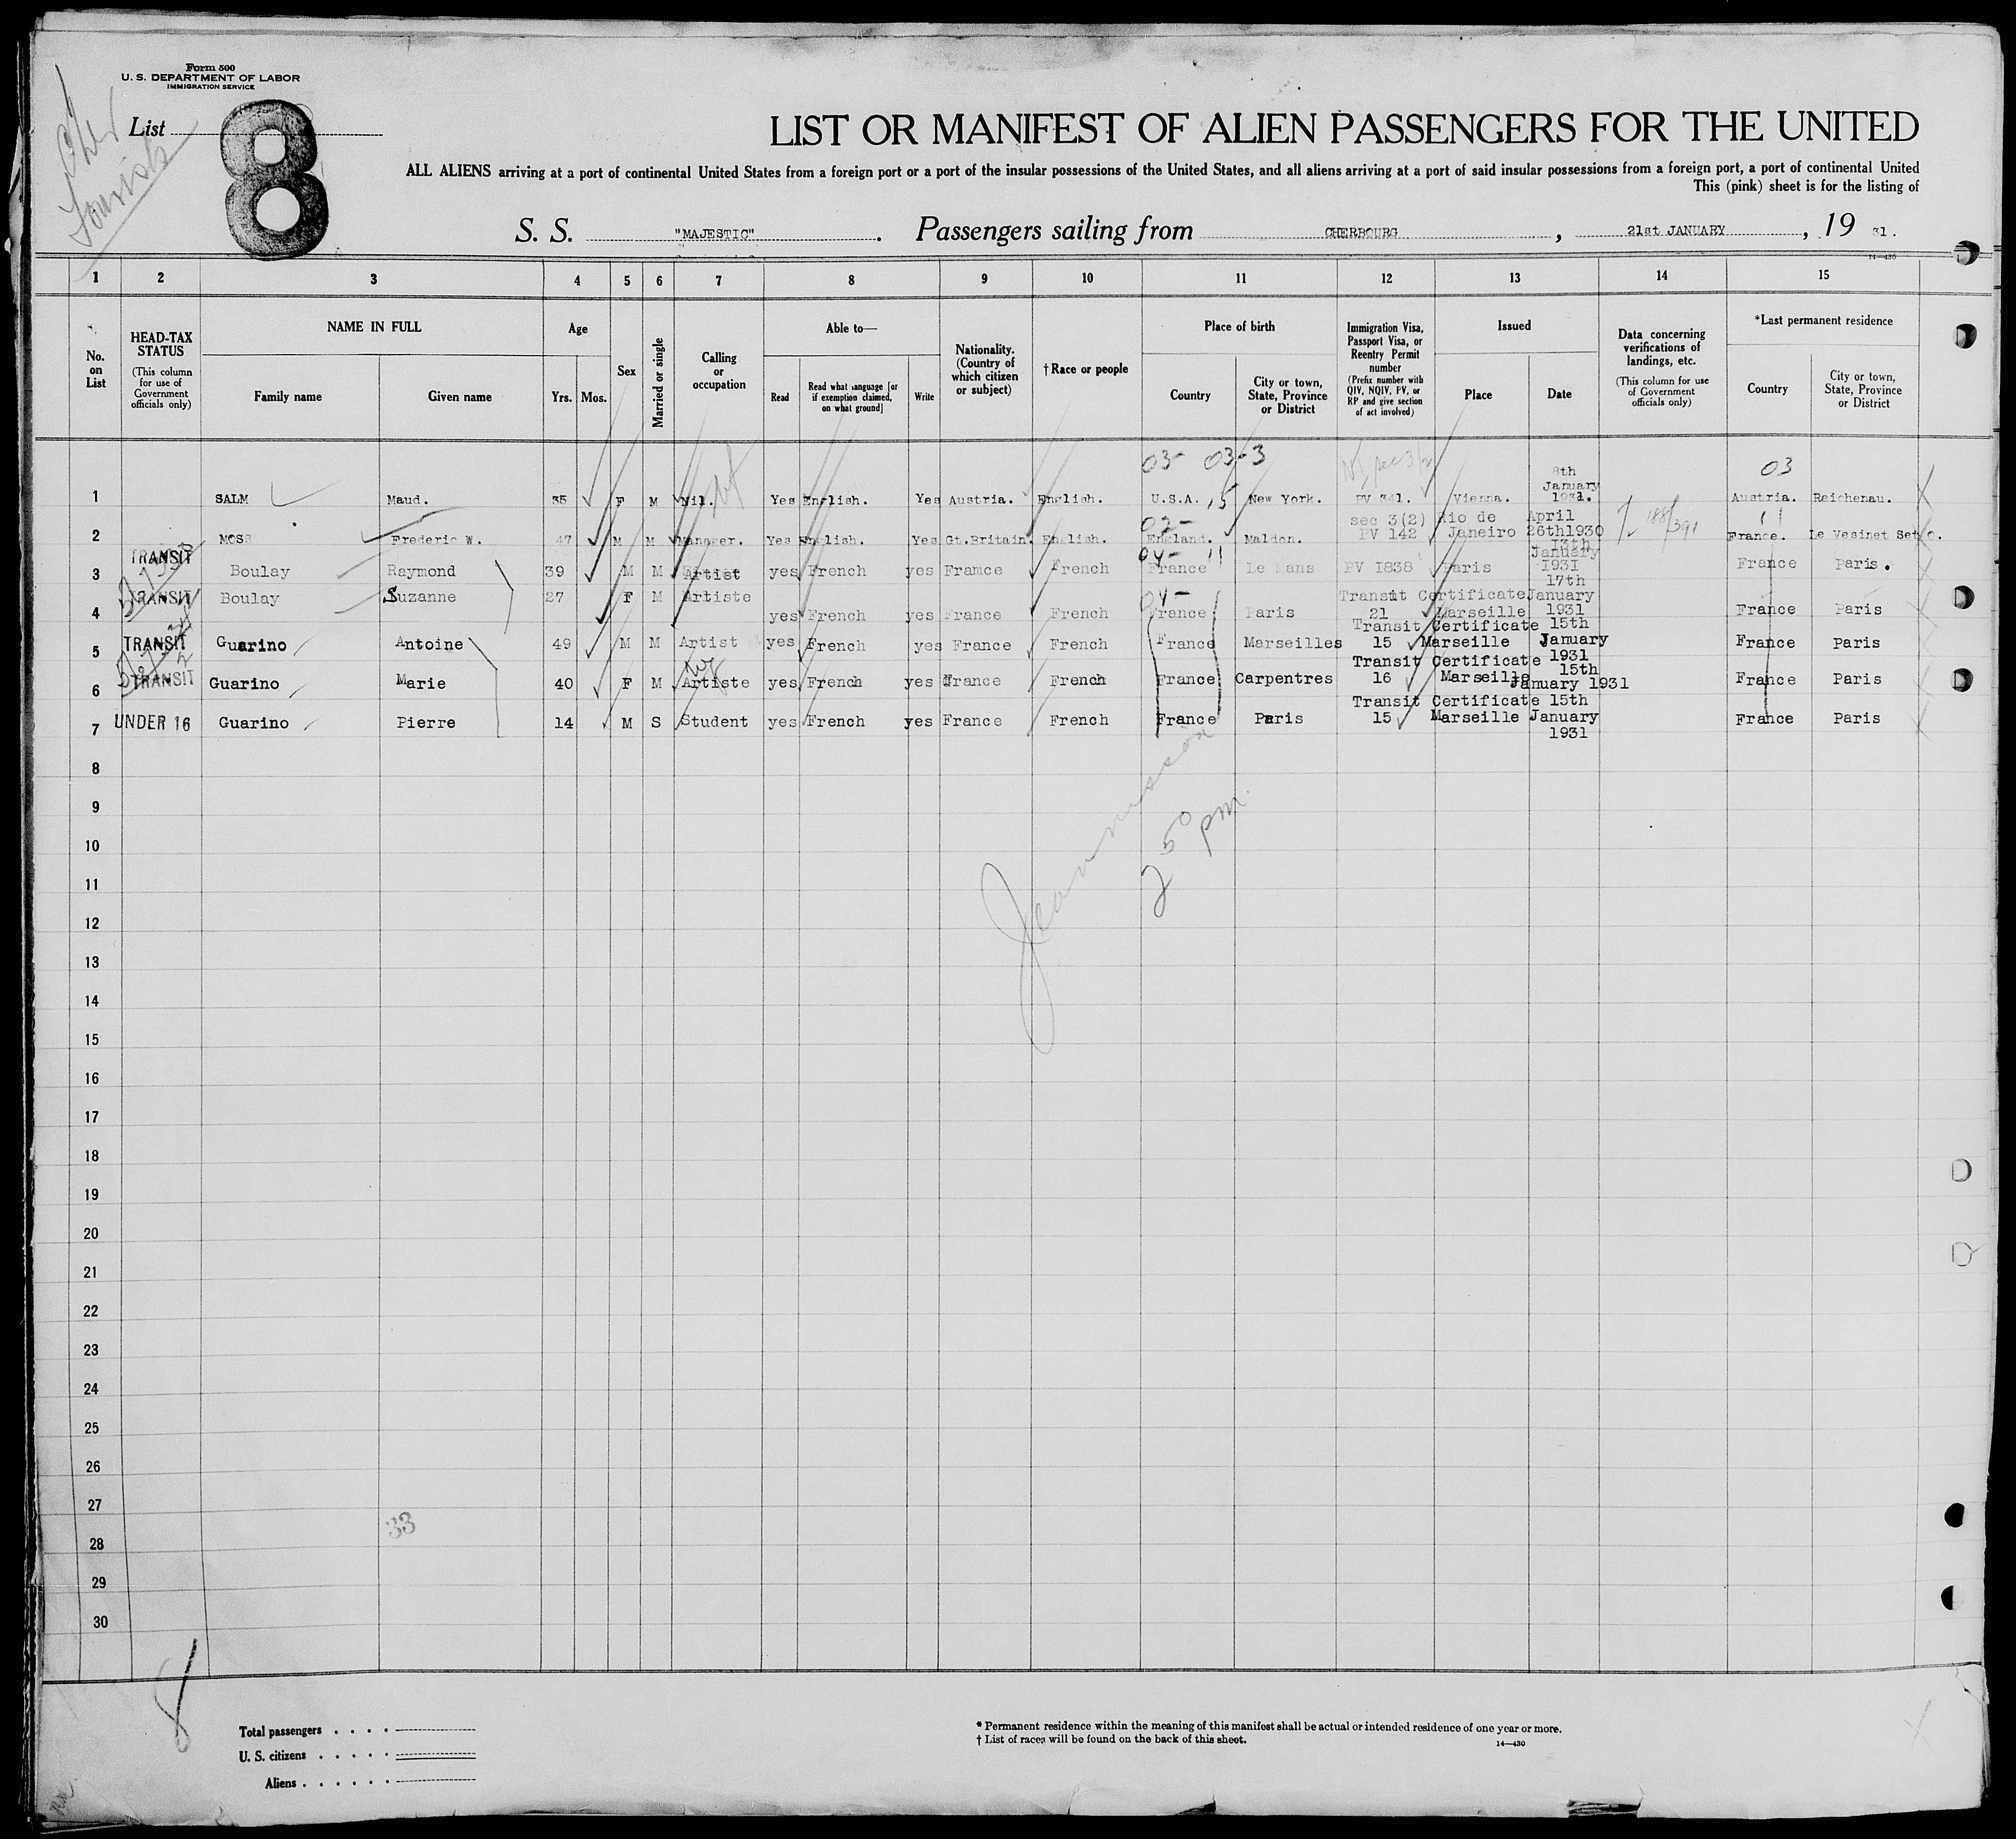 Form 500
U. S. DEPARTMENT OF LABOR
IMMIGRATION SERVICE
List 8
Cher
Tourist
LIST OR MANIFEST OF ALIEN PASSENGERS FOR THE UNITED
ALL ALIENS arriving at a port of continental United States from a foreign port or a port of the insular possessions of the United States, and all aliens arriving at a port of said insular possessions from a foreign port, a port of continental United
This (pink) sheet is for the listing of
S. S. "MAJESTIC". Passengers sailing from CHERBOURG, 21st JANUARY, 19 31.
14—430
1 2 3 4 5 6 7 8 9 10 11 12 13 14 15
No. on List
HEAD-TAX STATUS
(This column for use of Government officials only)
NAME IN FULL
Family name Given name
Age
Yrs. Mos.
Sex
Married or single
Calling or occupation
Able to—
Read Read what language [or if exemption claimed, on what ground] Write
Nationality. (Country of which citizen or subject)
†Race or people
Place of birth
Country City or town, State, Province or District
Immigration Visa, Passport Visa, or Reentry Permit number
(Prefix number with QIV, NQIV, PV, or RP and give section of act involved)
Issued
Place Date
Data concerning verifications of landings, etc.
(This column for use of Government officials only)
*Last permanent residence
Country City or town, State, Province or District
03- 03-3 03
1 SALM Maud. 35 F M Nil. Yes English. Yes Austria. English. U.S.A. 15 New York. PV 341. Vienna. 8th January 1931. Austria. Reichenau.
02- 11
2 MOSS Frederic W. 47 M M Manager. Yes English. Yes Gt.Britain. English. England. Maldon. sec 3(2) PV 142 Rio de Janeiro April 26th1930 188/391 France. Le Vesinet Set/o.
04- 11
3 TRANSIT Boulay Raymond 39 M M Artist yes French yes Framce French France Le Mans PV 1838 Paris 13th January 1931 France Paris.
04-
4 TRANSIT Boulay Suzanne 27 F M Artiste yes French yes France French France Paris Transit Certificate 21 Marseille 17th January 1931 France Paris
5 TRANSIT Guarino Antoine 49 M M Artist yes French yes France French France Marseilles Transit Certificate 15 Marseille 15th January 1931 France Paris
6 TRANSIT Guarino Marie 40 F M Artiste yes French yes France French France Carpentres Transit Certificate 16 Marseille 15th January 1931 France Paris
7 UNDER 16 Guarino Pierre 14 M S Student yes French yes France French France Paris Transit Certificate 15 Marseille 15th January 1931 France Paris
8
9
10
2 50 pm.
11
12
13
14
15
16
17
18
19
20
21
22
23
24
25
26
27
33
28
29
30
8
Total passengers . . . .
U. S. citizens . . . . .
Aliens . . . . . .
* Permanent residence within the meaning of this manifest shall be actual or intended residence of one year or more.
† List of races will be found on the back of this sheet.
14—430